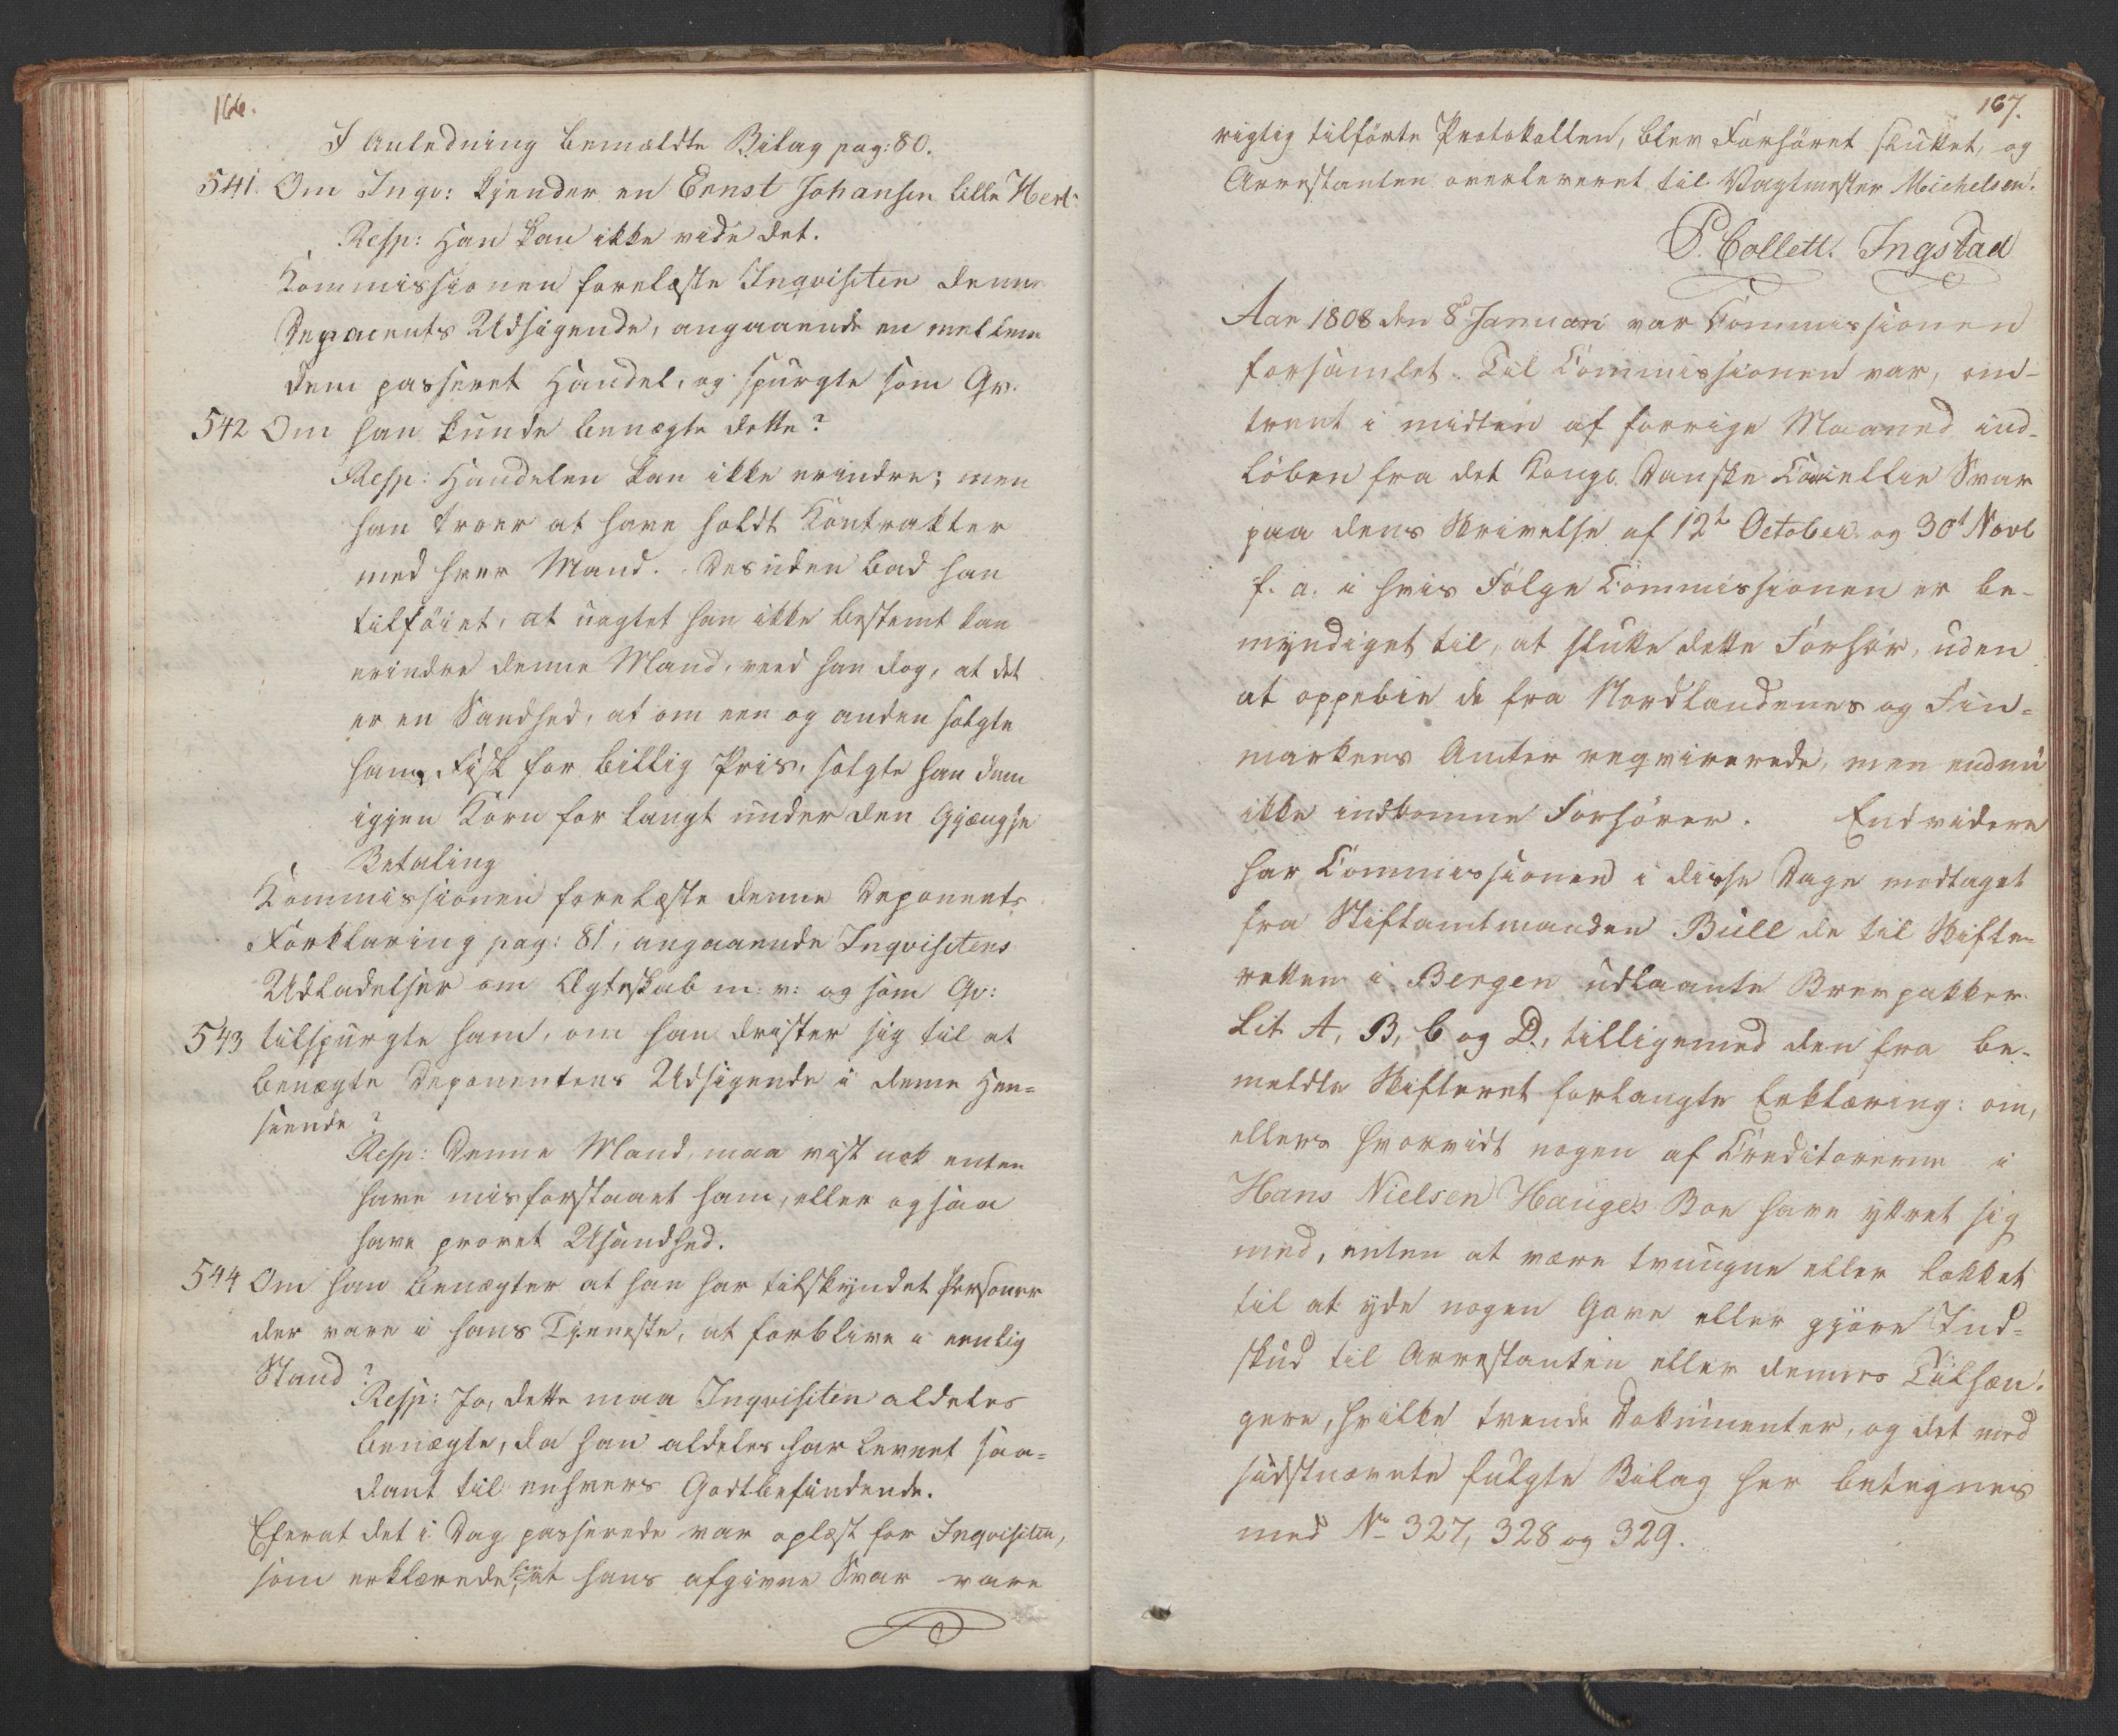 166.
I Anledning bemældte Bilag pag: 80.
541. Om Inqv: kjender en Ernst Johansen lille Hert-
Resp: Han kan ikke vide det.
Kommissionen forelæste Inqvisiten denne
Deponents Udsigende, angaaende en mellem
dem passeret Handel, og spurgte som Qv.
542 Om han kunde benægte dette?
Resp: Handelen kan ikke erindre; men
han troer at have holdt Kontrakter
med hver Mand. Desuden bad han
tilføiet, at uagtet han ikke bestemt kan
erindre denne Mand, veed han dog, at det
er en Sandhed, at om een og anden solgte
ham Fisk for billig Pris, solgte han dem
igjen Korn for langt under den gjængse
Betaling
Kommissionen forelæste denne Deponents
Forklaring pag: 81, angaaende Inqvisitens
Udladelser om Ægteskab m: v: og som Qv:
543 tilspurgte ham, om han drister sig til at
benægte Deponentens Udsigende i denne Hen-
seende?
Resp: Denne Mand, maa vist nok enten
have misforstaaet ham, eller ogsaa
have provet Usandhed.
544 Om han benægter at han har tilskyndet Personer
der vare i hans Tjeneste, at forblive i eenlig
Stand?
Resp: Jo, dette maa Inqvisiten aldeles
benægte, da han aldeles har levnet saa-
dant til enhvers Godtbefindende.
Efterat det i Dag passerede var oplæst for Inqvisiten,
som erklærede, at hans afgivne Svar vare
167.
rigtig tilførte Protokollen, blev Forhøret sluttet, og
Arrestanten overleveret til Vagtmester Michelsen.
P. Collett. Ingstad
Aar 1808 den 8de Januari var Commissionen
forsamlet. Til Commissionen var, om-
trent i midten af forrige Maaned ind-
løben fra det Kongl. Danske Cancellie Svar
paa dens Skrivelse af 12te October og 30t Novb
f. a. i hvis Følge Commissionen er be-
myndiget til, at slutte dette Forhør, uden
at oppebie de fra Nordlandenes og Fin-
markens Amter reqvirerede, men endnu
ikke indkomne Forhører. Endvidere
har Commissionen i disse Dage modtaget
fra Stiftamtmanden Bull de til Skifte-
retten i Bergen udlaante Brevpakker
Lit. A, B, C og D., tilligemed den fra be-
meldte Skifteret forlangte Erklæring: om,
ellers hvorvidt nogen af Creditorerne i
Hans Nielsen Hauges Boe have yttret sig
med, enten at være tvungne eller lokket
til at yde nogen Gave eller gjøre Ind-
skud til Arrestanten eller dennes Tilhæn-
gere, hvilke tvende Dokumenter, og det med
sidstnævnte fulgte Bilag her betegnes
med No 327, 328 og 329.